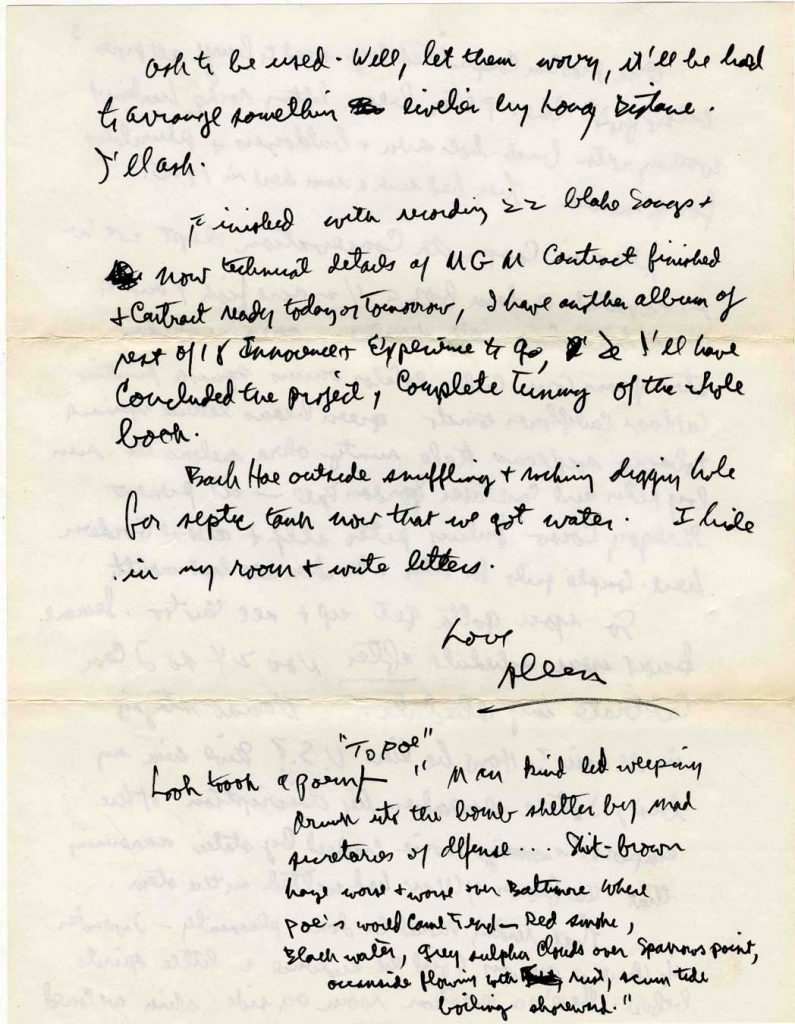 ask to be used. Well, let them worry, it'll be hard
to arrange somethin livelier by Long Distance.
I'll ask.
Finished with recording 22 Blake Songs +
now technical details of MGM Contract finished
+ Contract ready today or Tomorrow, I have another album of
rest of 18 Innocence + Experience to go, & I'll have
Concluded the project, Complete Tuning of the whole
book.
Back Hoe outside snuffling + digging hole
for septic tank now that we got water. I hide
in my room + write letters.
Love
Allen
"To Poe"
Look took a poem— "Man kind led weeping
drunk into the bomb shelter by mad
secretaries of defense... Shit-brown
haze worse + worse over Baltimore where
Poe's world came to end— Red smoke,
Black water, grey sulphur clouds over Sparrows point,
oceanside flowing with rust, scum tide
boiling shoreward."